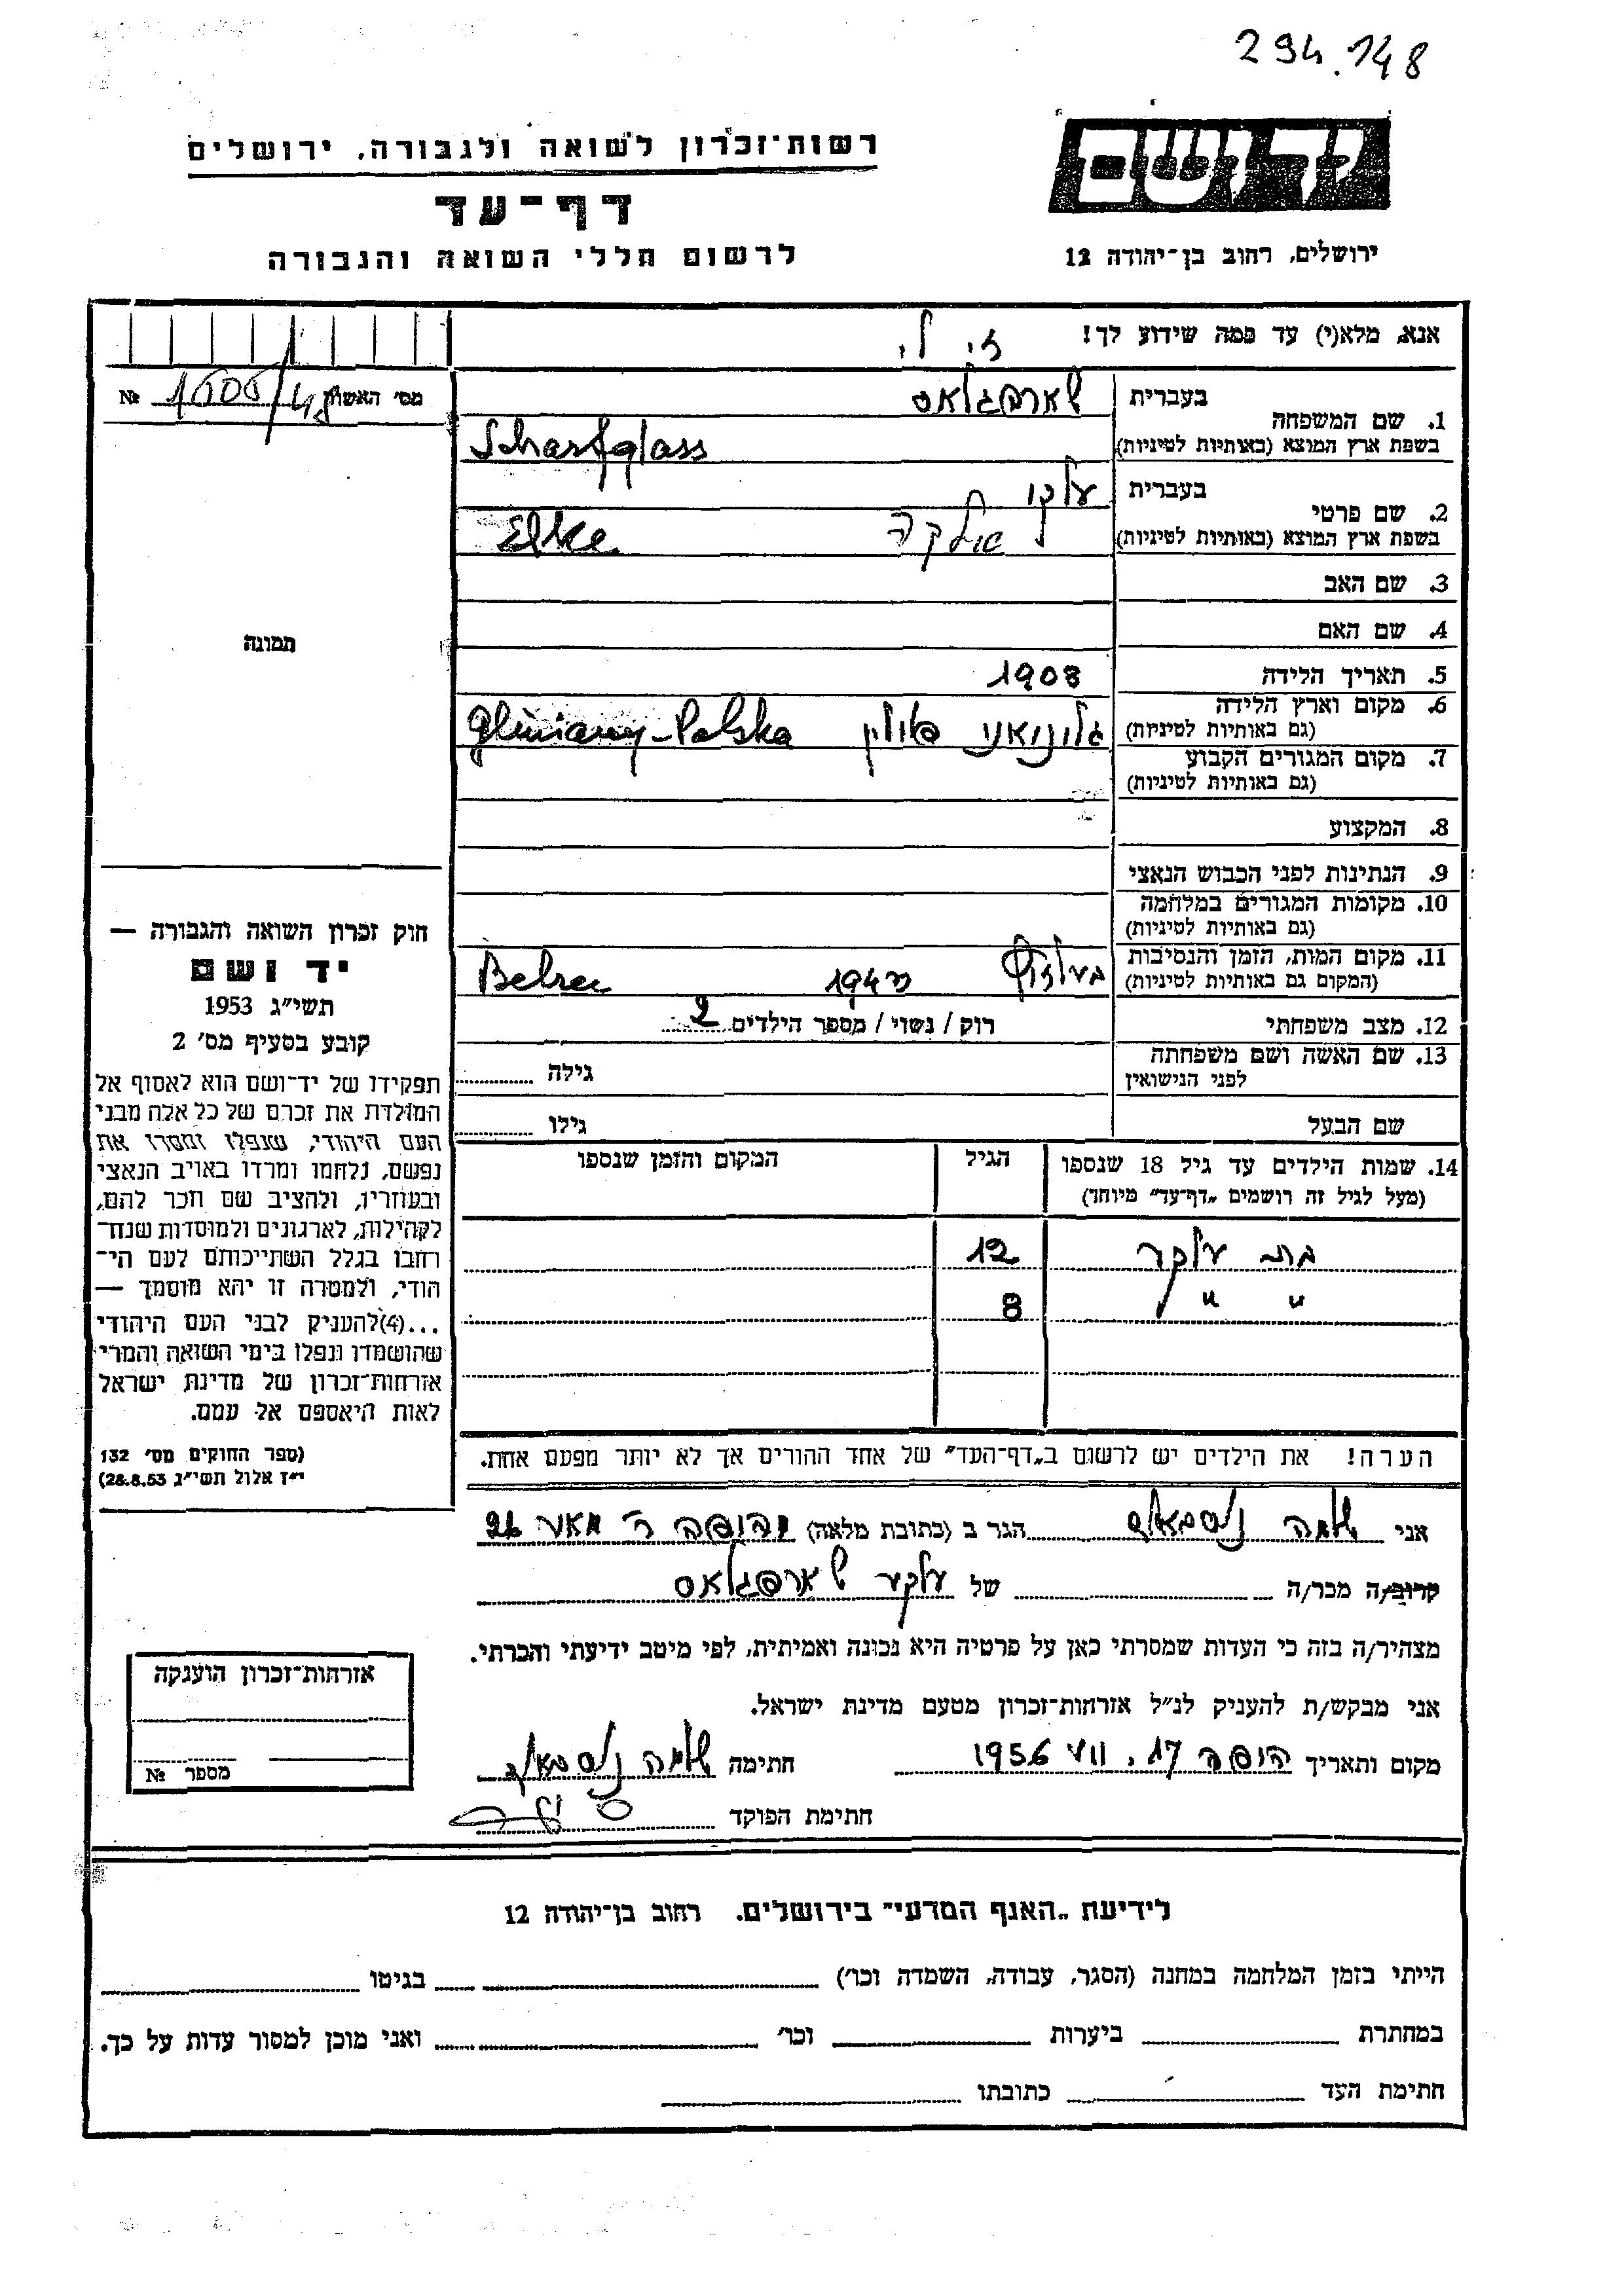 294.148
רשות־זכרון לשואה ולגבורה, ירושלים
יד ושם
דף־עד
לרשום חללי השואה והגבורה
ירושלים, רחוב בן־יהודה 12
אנא, מלא(י) עד כמה שידוע לך!
מס' האשון № 1505/48
1. שם המשפחה
בעברית שארפגלאס
בשפת ארץ המוצא (באותיות לטיניות) Scharfglass
2. שם פרטי
בעברית
בשפת ארץ המוצא (באותיות לטיניות) Elke
3. שם האב
4. שם האם
5. תאריך הלידה 1908
6. מקום וארץ הלידה
(גם באותיות לטיניות) גליניאני פולין Gliniany-Polska
7. מקום המגורים הקבוע
(גם באותיות לטיניות)
8. המקצוע
9. הנתינות לפני הכבוש הנאצי
10. מקומות המגורים במלחמה
(גם באותיות לטיניות)
11. מקום המות, הזמן והנסיבות
(המקום גם באותיות לטיניות) Belzec
12. מצב משפחתי רוק / נשוי / מספר הילדים 2
13. שם האשה ושם משפחתה
לפני הנישואין גילה
שם הבעל גילו
14. שמות הילדים עד גיל 18 שנספו
(מעל לגיל זה רושמים „דף־עד" מיוחד)
הגיל
המקום והזמן שנספו
12
" " 8
הערה! את הילדים יש לרשום ב„דף־העד" של אחד ההורים אך לא יותר מפעם אחת.
תמונה
חוק זכרון השואה והגבורה —
יד ושם
תשי"ג 1953
קובע בסעיף מס' 2
תפקידו של יד־ושם הוא לאסוף אל
המולדת את זכרם של כל אלה מבני
העם היהודי, שנפלו ומסרו את
נפשם, נלחמו ומרדו באויב הנאצי
ובעוזריו, ולהציב שם וזכר להם,
לקהילות, לארגונים ולמוסדות שנח־
רחבו בגלל השתייכותם לעם הי־
הודי, ולמטרה זו יהא מוסמך —
...(4)להעניק לבני העם היהודי
שהושמדו ונפלו בימי השואה והמרי
אזרחות־זכרון של מדינת ישראל
לאות היאספם אל עמם.
(ספר החוקים מס' 132
י"ז אלול תשי"ג 28.8.53)
אני הגר ב (כתובת מלאה)
קרוב/ה מכר/ה של שארפגלאס
מצהיר/ה בזה כי העדות שמסרתי כאן על פרטיה היא נכונה ואמיתית, לפי מיטב ידיעתי והכרתי.
אני מבקש/ת להעניק לנ"ל אזרחות־זכרון מטעם מדינת ישראל.
מקום ותאריך 17. VII 1956 חתימה
חתימת הפוקד
אזרחות־זכרון הוענקה
מספר №
לידיעת „האגף המדעי" בירושלים. רחוב בן־יהודה 12
הייתי בזמן המלחמה במחנה (הסגר, עבודה, השמדה וכו') בגיטו
במחתרת ביערות וכו' ואני מוכן למסור עדות על כך.
חתימת העד כתובתו